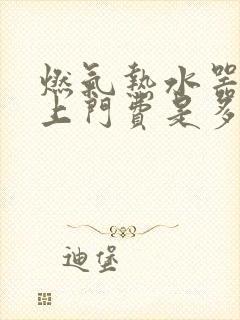 燃氣熱水器
上門費是多
迪堡